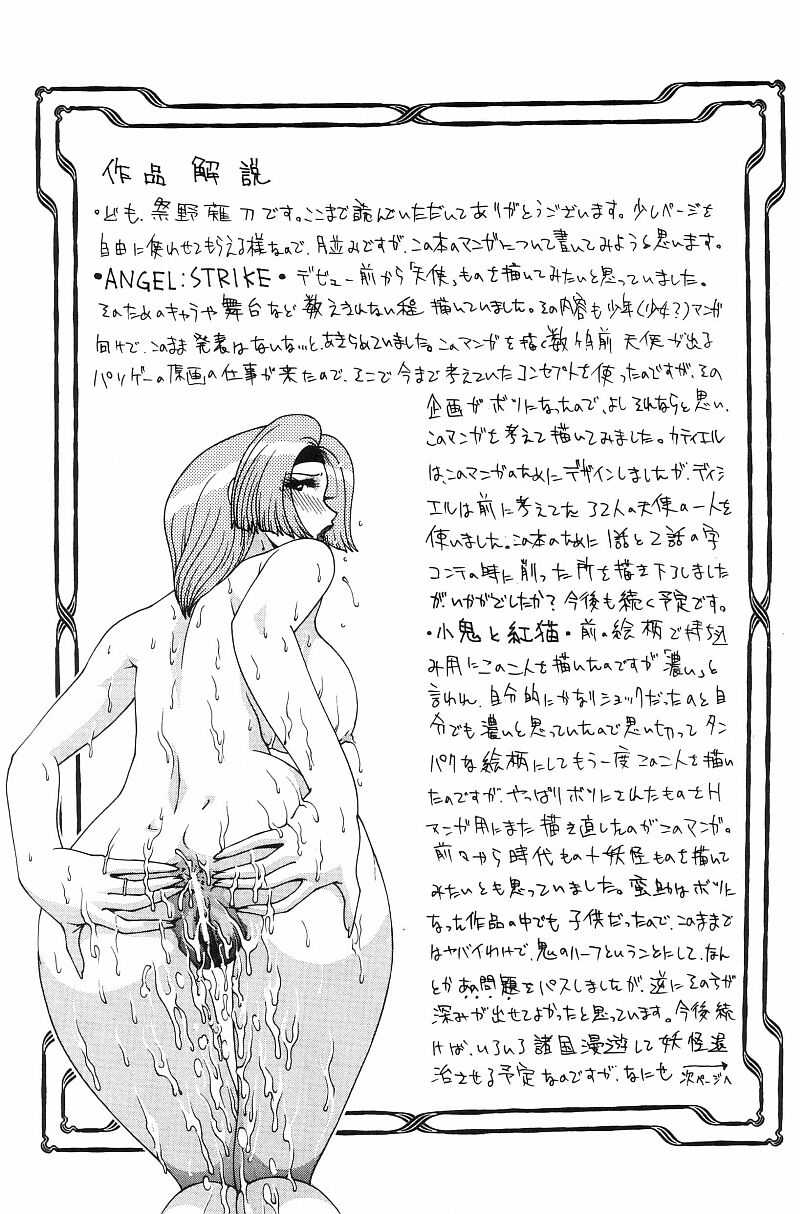 作品解説
・ども、祭野薙刀です。ここまで読んでいただいてありがとうございます。少しページを
自由に使わせてもらえる様なので、月並みですが、この本のマンガについて書いてみようと思います。
・ANGEL:STRIKE・デビュー前から「天使」ものを描いてみたいと思っていました。
そのためのキャラや舞台など数えきれない程描いていました。その内容も少年(少女?)マンガ
向けで、このまま発表はないな…と、あきらめていました。このマンガを描く数ヶ月前天使が出る
パソゲーの原画の仕事が来たので、そこで今まで考えていたコンセプトを使ったのですが、その
企画がボツになったので、よしそれならと思い、
このマンガを考えて描いてみました。カティエル
は、このマンガのためにデザインしましたが、ディシ
エルは前に考えてた32人の天使の一人を
使いました。この本のために1話と2話の字
コンテの時に削った所を描き下ろしました
がいかがでしたか?今後も続く予定です。
・小鬼と紅猫・前の絵柄で持ち込
み用にこの二人を描いたのですが「濃い」と
言われ、自分的にかなりショックだったのと自
分でも濃いと思っていたので思い切ってタン
パクな絵柄にしてもう一度この二人を描い
たのですが、やっぱりボツにされたものをH
マンガ用にまた描き直したのがこのマンガ。
前々から時代もの+妖怪ものを描いて
みたいとも思っていました。蛮助はボツに
なった作品の中でも子供だったので、このままで
はヤバイわけで、鬼のハーフということにして、なん
とかあの問題をパスしましたが、逆にその方が
深みが出せてよかったと思っています。今後続
けば、いろいろ諸国漫遊して妖怪退
治させる予定なのですが、なにも 次ページへ